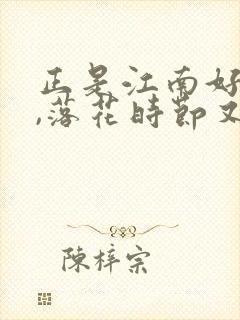 正是江南好
,落花时节又
陳梓宗